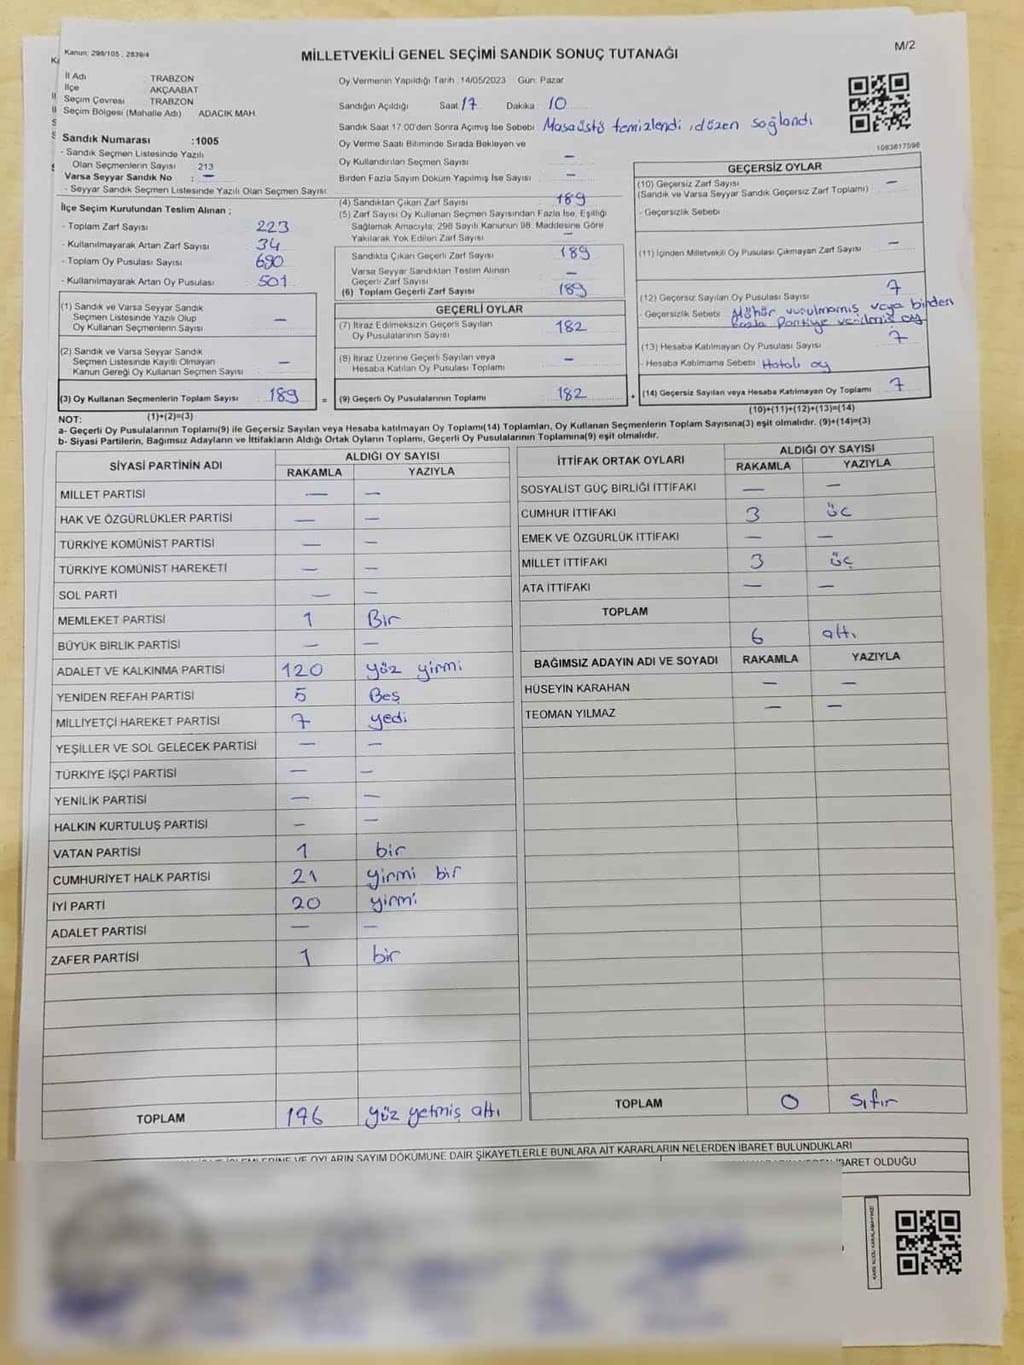 Kanun: 298/105 , 2839/4
MİLLETVEKİLİ GENEL SEÇİMİ SANDIK SONUÇ TUTANAĞI
M/2
İl Adı TRABZON
İlçe AKÇAABAT
Seçim Çevresi TRABZON
Seçim Bölgesi (Mahalle Adı) ADACIK MAH.
Sandık Numarası :1005
- Sandık Seçmen Listesinde Yazılı
Olan Seçmenlerin Sayısı 213
Varsa Seyyar Sandık No : —
- Seyyar Sandık Seçmen Listesinde Yazılı Olan Seçmen Sayısı
Oy Vermenin Yapıldığı Tarih :14/05/2023 Gün: Pazar
Sandığın Açıldığı Saat 17 Dakika 10
Sandık Saat 17:00'den Sonra Açılmış İse Sebebi Masaüstü temizlendi, düzen sağlandı
Oy Verme Saati Bitiminde Sırada Bekleyen ve
Oy Kullandırılan Seçmen Sayısı —
Birden Fazla Sayım Döküm Yapılmış İse Sayısı —
1083617596
İlçe Seçim Kurulundan Teslim Alınan ;
- Toplam Zarf Sayısı 223
- Kullanılmayarak Artan Zarf Sayısı 34
- Toplam Oy Pusulası Sayısı 690
- Kullanılmayarak Artan Oy Pusulası 501
(1) Sandık ve Varsa Seyyar Sandık
Seçmen Listesinde Yazılı Olup
Oy Kullanan Seçmenlerin Sayısı —
(2) Sandık ve Varsa Seyyar Sandık
Seçmen Listesinde Kayıtlı Olmayan
Kanun Gereği Oy Kullanan Seçmen Sayısı —
(3) Oy Kullanan Seçmenlerin Toplam Sayısı 189 =
(1)+(2)=(3)
(4) Sandıktan Çıkan Zarf Sayısı 189
(5) Zarf Sayısı Oy Kullanan Seçmen Sayısından Fazla İse, Eşitliği
Sağlamak Amacıyla; 298 Sayılı Kanunun 98. Maddesine Göre
Yakılarak Yok Edilen Zarf Sayısı —
Sandıkta Çıkan Geçerli Zarf Sayısı 189
Varsa Seyyar Sandıktan Teslim Alınan
Geçerli Zarf Sayısı —
(6) Toplam Geçerli Zarf Sayısı 189
GEÇERLİ OYLAR
(7) İtiraz Edilmeksizin Geçerli Sayılan
Oy Pusulalarının Sayısı 182
(8) İtiraz Üzerine Geçerli Sayılan veya
Hesaba Katılan Oy Pusulası Toplamı —
(9) Geçerli Oy Pusulalarının Toplamı 182 +
GEÇERSİZ OYLAR
(10) Geçersiz Zarf Sayısı —
(Sandık ve Varsa Seyyar Sandık Geçersiz Zarf Toplamı)
- Geçersizlik Sebebi
(11) İçinden Milletvekili Oy Pusulası Çıkmayan Zarf Sayısı —
(12) Geçersiz Sayılan Oy Pusulası Sayısı 7
Geçersizlik Sebebi Mühür vurulmamış veya birden
fazla Partiye verilmiş oy
(13) Hesaba Katılmayan Oy Pusulası Sayısı 7
- Hesaba Katılmama Sebebi Hatalı oy
(14) Geçersiz Sayılan veya Hesaba Katılmayan Oy Toplamı 7
(10)+(11)+(12)+(13)=(14)
NOT:
a- Geçerli Oy Pusulalarının Toplamı(9) ile Geçersiz Sayılan veya Hesaba katılmayan Oy Toplamı(14) Toplamları, Oy Kullanan Seçmenlerin Toplam Sayısına(3) eşit olmalıdır. (9)+(14)=(3)
b- Siyasi Partilerin, Bağımsız Adayların ve İttifakların Aldığı Ortak Oyların Toplamı, Geçerli Oy Pusulalarının Toplamına(9) eşit olmalıdır.
SİYASİ PARTİNİN ADI ALDIĞI OY SAYISI
RAKAMLA YAZIYLA
MİLLET PARTİSİ — —
HAK VE ÖZGÜRLÜKLER PARTİSİ — —
TÜRKİYE KOMÜNİST PARTİSİ — —
TÜRKİYE KOMÜNİST HAREKETİ — —
SOL PARTİ — —
MEMLEKET PARTİSİ 1 Bir
BÜYÜK BİRLİK PARTİSİ — —
ADALET VE KALKINMA PARTİSİ 120 yüz yirmi
YENİDEN REFAH PARTİSİ 5 Beş
MİLLİYETÇİ HAREKET PARTİSİ 7 yedi
YEŞİLLER VE SOL GELECEK PARTİSİ — —
TÜRKİYE İŞÇİ PARTİSİ — —
YENİLİK PARTİSİ — —
HALKIN KURTULUŞ PARTİSİ — —
VATAN PARTİSİ 1 bir
CUMHURİYET HALK PARTİSİ 21 yirmi bir
İYİ PARTİ 20 yirmi
ADALET PARTİSİ — —
ZAFER PARTİSİ 1 bir
TOPLAM 176 yüz yetmiş altı
İTTİFAK ORTAK OYLARI ALDIĞI OY SAYISI
RAKAMLA YAZIYLA
SOSYALİST GÜÇ BİRLİĞİ İTTİFAKI — —
CUMHUR İTTİFAKI 3 üc
EMEK VE ÖZGÜRLÜK İTTİFAKI — —
MİLLET İTTİFAKI 3 üç
ATA İTTİFAKI — —
TOPLAM 6 altı
BAĞIMSIZ ADAYIN ADI VE SOYADI RAKAMLA YAZIYLA
HÜSEYİN KARAHAN — —
TEOMAN YILMAZ — —
TOPLAM 0 Sıfır
OYLARIN SAYIM DÖKÜMÜNE DAİR ŞİKAYETLERLE BUNLARA AİT KARARLARIN NELERDEN İBARET BULUNDUKLARI
İBARET OLDUĞU